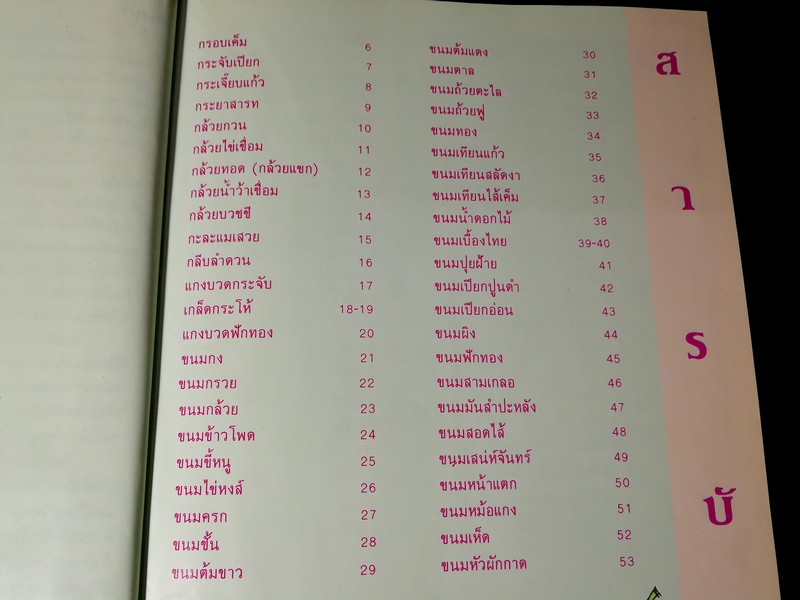 กรอบเค็ม 6
กระจับเปียก 7
กระเจี๊ยบแก้ว 8
กระยาสารท 9
กล้วยกวน 10
กล้วยไข่เชื่อม 11
กล้วยทอด (กล้วยแขก) 12
กล้วยน้ำว้าเชื่อม 13
กล้วยบวชชี 14
กะละแมเสวย 15
กลีบลำดวน 16
แกงบวดกระจับ 17
เกล็ดกระโห้ 18-19
แกงบวดฟักทอง 20
ขนมกง 21
ขนมกรวย 22
ขนมกล้วย 23
ขนมข้าวโพด 24
ขนมขี้หนู 25
ขนมไข่หงส์ 26
ขนมครก 27
ขนมชั้น 28
ขนมต้มขาว 29
ขนมต้มแดง 30
ขนมตาล 31
ขนมถ้วยตะไล 32
ขนมถ้วยฟู 33
ขนมทอง 34
ขนมเทียนแก้ว 35
ขนมเทียนสลัดงา 36
ขนมเทียนไส้เค็ม 37
ขนมน้ำดอกไม้ 38
ขนมเบื้องไทย 39-40
ขนมปุยฝ้าย 41
ขนมเปียกปูนดำ 42
ขนมเปียกอ่อน 43
ขนมผิง 44
ขนมฟักทอง 45
ขนมสามเกลอ 46
ขนมมันสำปะหลัง 47
ขนมสอดไส้ 48
ขนมเสน่ห์จันทร์ 49
ขนมหน้าแตก 50
ขนมหม้อแกง 51
ขนมเห็ด 52
ขนมหัวผักกาด 53
ส
า
ร
บั